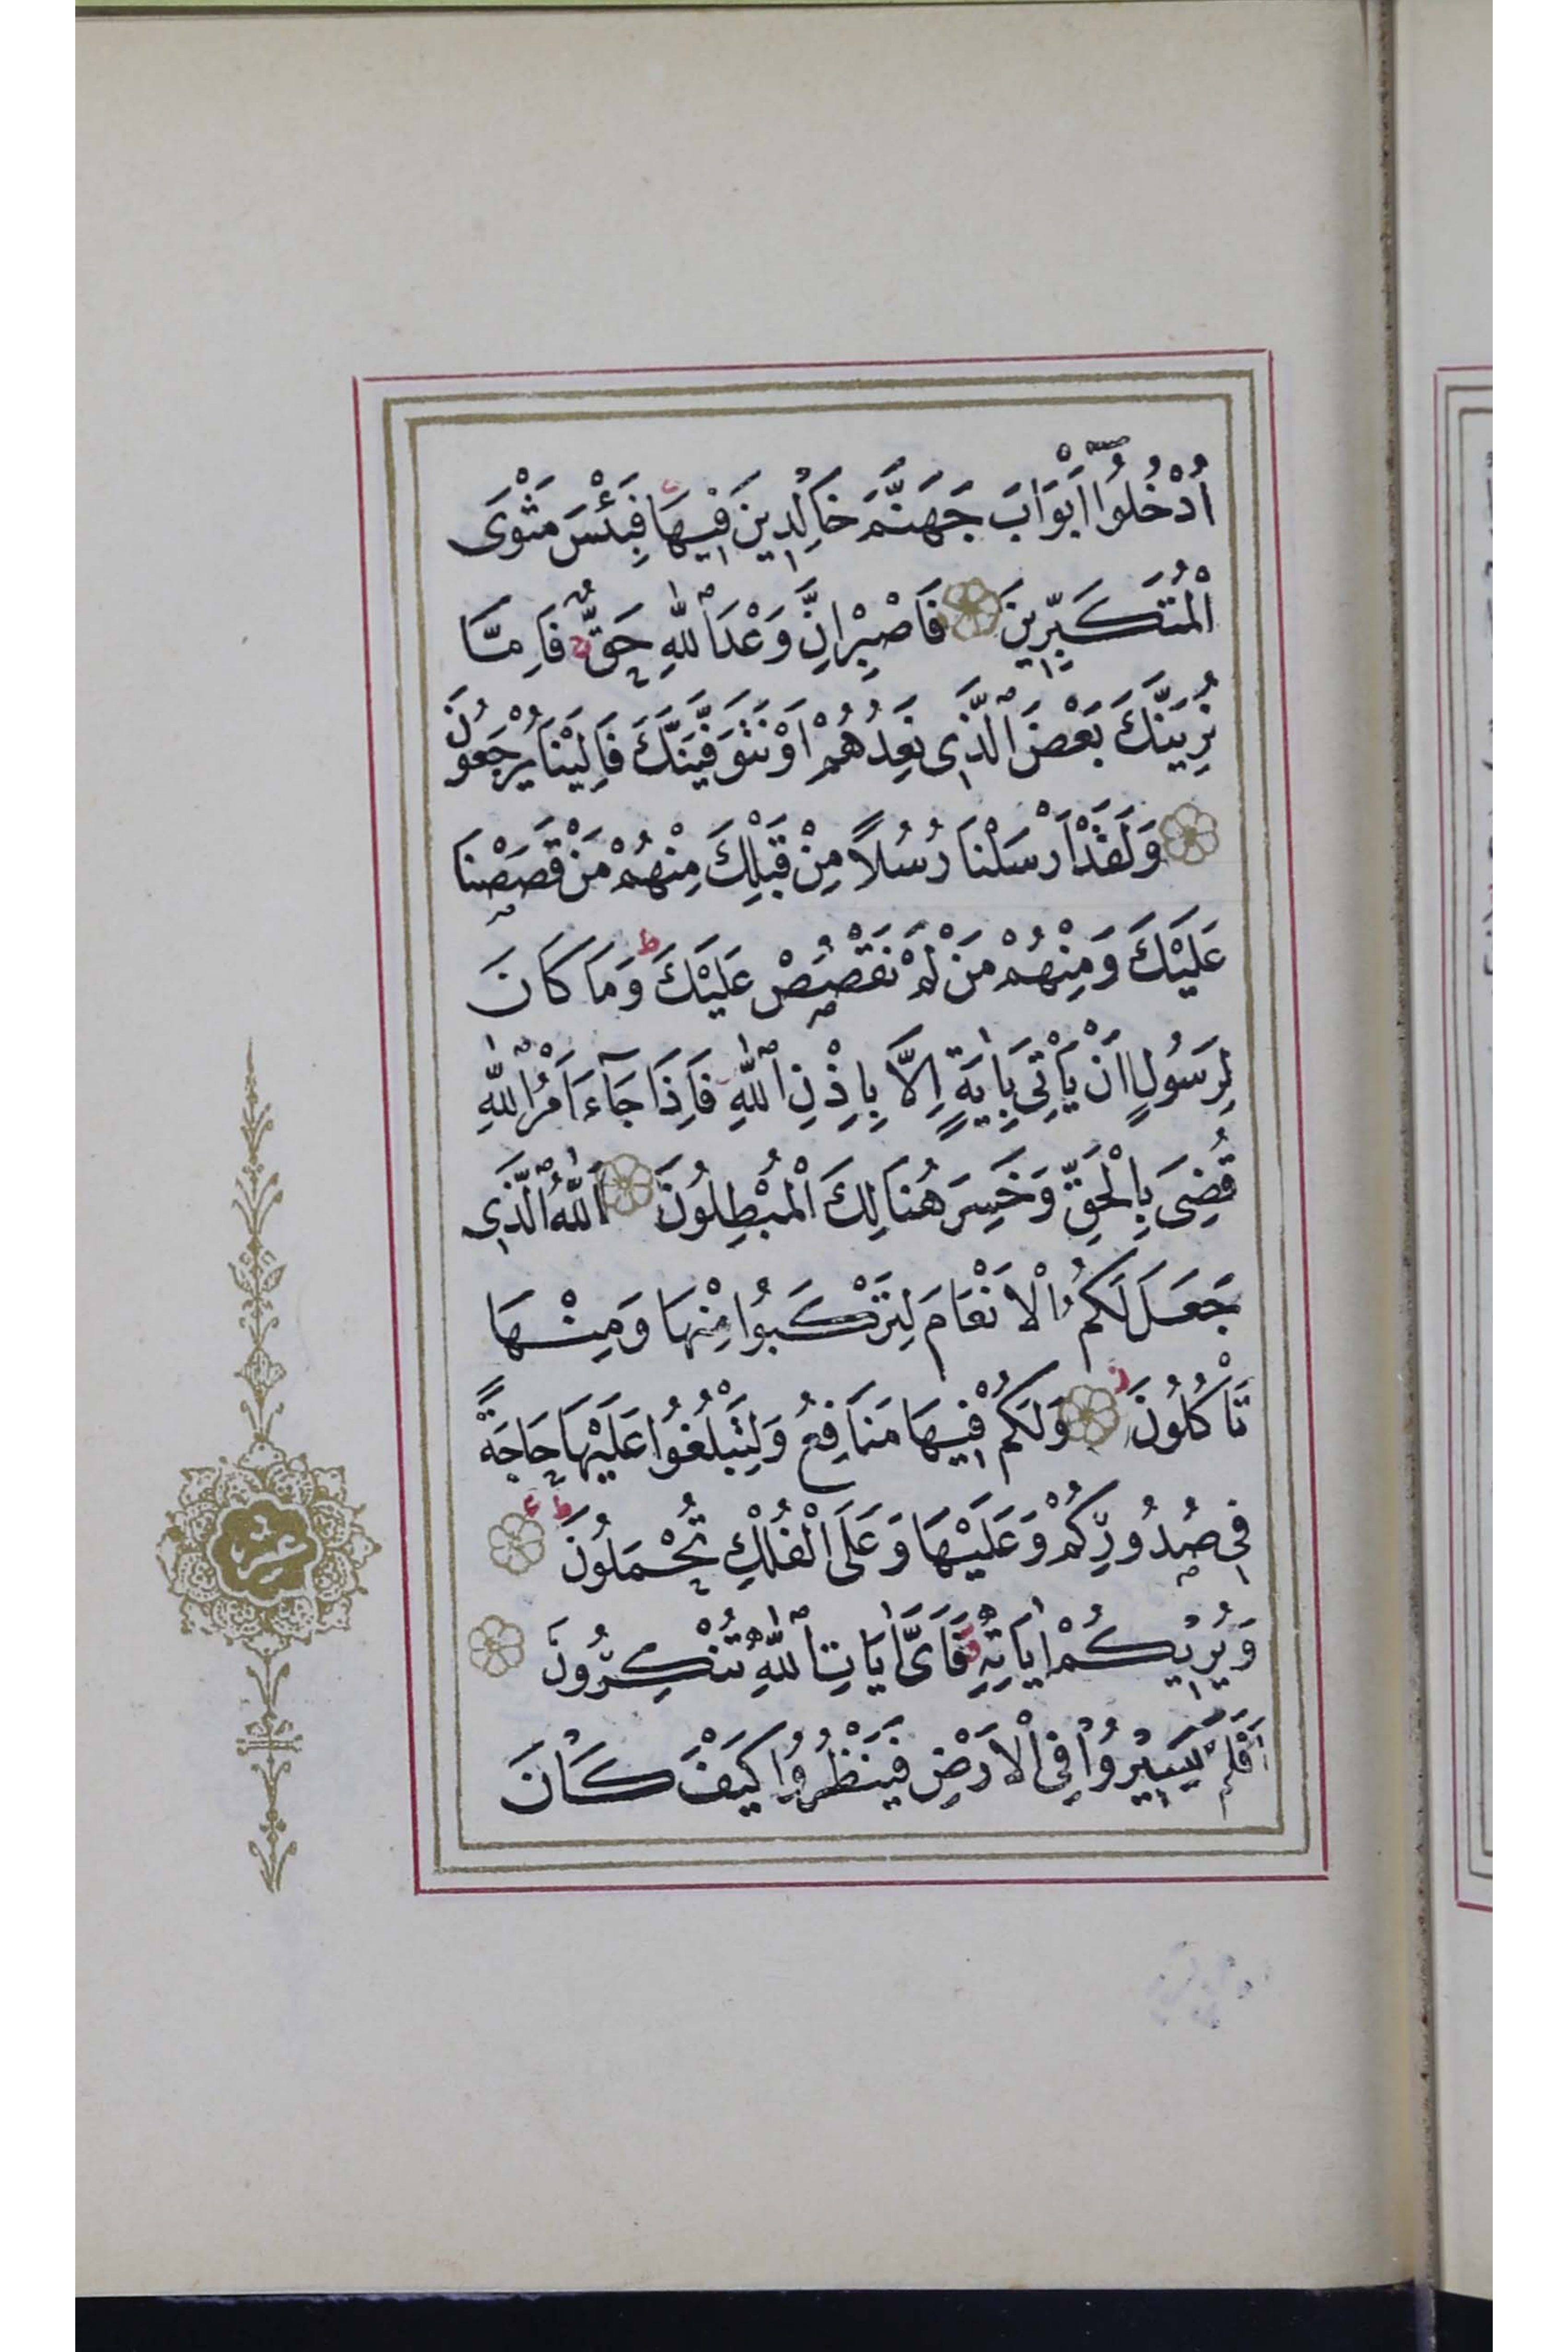 اُدْخُلُٓوا اَبْوَابَ جَهَنَّمَ خَالِدِينَ فِيهَا فَبِئْسَ مَثْوَى
الْمُتَكَبِّرِينَ فَاصْبِرْ اِنَّ وَعْدَ اللّٰهِ حَقٌّ فَاِمَّا
نُرِيَنَّكَ بَعْضَ الَّذِى نَعِدُهُمْ اَوْ نَتَوَفَّيَنَّكَ فَاِلَيْنَا يُرْجَعُونَ
وَلَقَدْ اَرْسَلْنَا رُسُلًا مِنْ قَبْلِكَ مِنْهُمْ مَنْ قَصَصْنَا
عَلَيْكَ وَمِنْهُمْ مَنْ لَمْ نَقْصُصْ عَلَيْكَ ط وَمَا كَانَ
لِرَسُولٍ اَنْ يَأْتِىَ بِاٰيَةٍ اِلَّا بِاِذْنِ اللّٰهِ فَاِذَا جَآءَ اَمْرُ اللّٰهِ
قُضِىَ بِالْحَقِّ وَخَسِرَ هُنَالِكَ الْمُبْطِلُونَ اَللّٰهُ الَّذِى
جَعَلَ لَكُمُ الْاَنْعَامَ لِتَرْكَبُوا مِنْهَا وَمِنْهَا
تَأْكُلُونَ ز وَلَكُمْ فِيهَا مَنَافِعُ وَلِتَبْلُغُوا عَلَيْهَا حَاجَةً
فِى صُدُورِكُمْ وَعَلَيْهَا وَعَلَى الْفُلْكِ تُحْمَلُونَ ط ع
وَيُرِيكُمْ اٰيَاتِهِ فَاَىَّ اٰيَاتِ اللّٰهِ تُنْكِرُونَ
اَفَلَمْ يَسِيرُوا فِى الْاَرْضِ فَيَنْظُرُوا كَيْفَ كَانَ
عشر